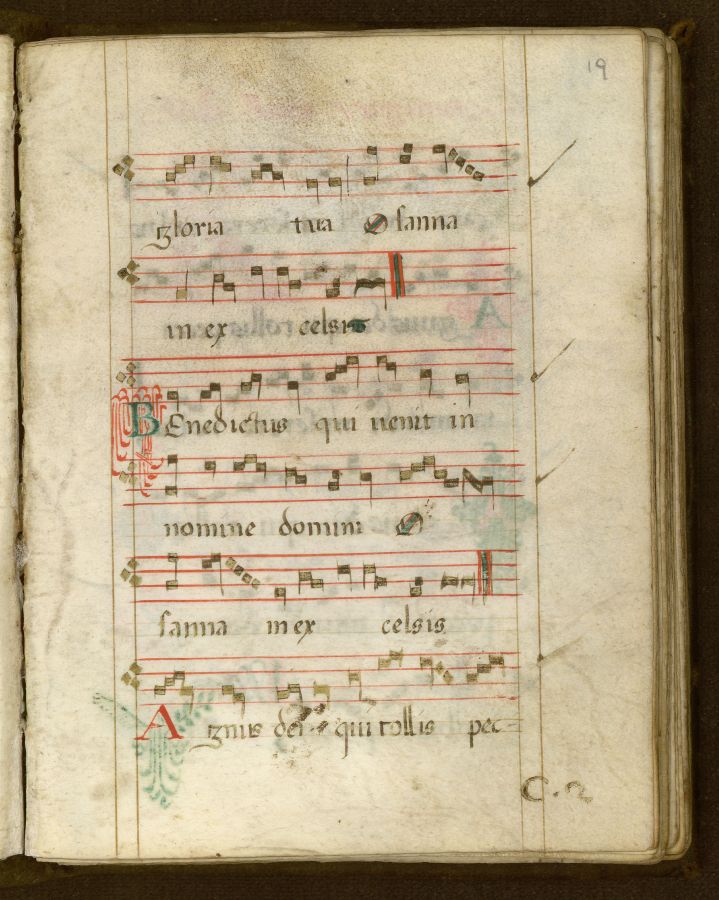 19
gloria tua O sanna
in ex celsis
BEnedictus qui uenit in
nomine domini O
sanna in ex celsis
Agnus dei qui tollis pec=
C. 2